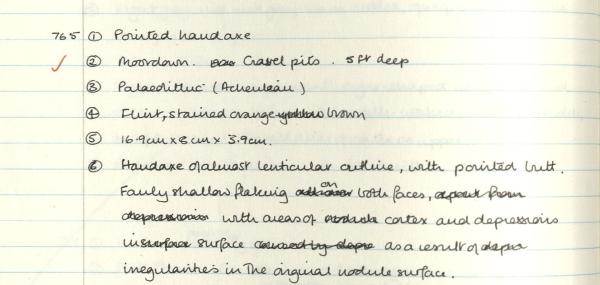 765 ① Pointed handaxe
② Moordown. Gravel pits. 5ft deep
③ Palaeolithic (Acheulean)
④ Flint, stained orange-yellow brown
⑤ 16.9cm x 8cm x 3.9cm.
⑥ Handaxe of almost lenticular outline, with pointed butt.
Fairly shallow flaking on both faces, apart from
depressions with areas of cortex and depressions
in surface surface caused by depre as a result of depre
irregularities in the original nodule surface.